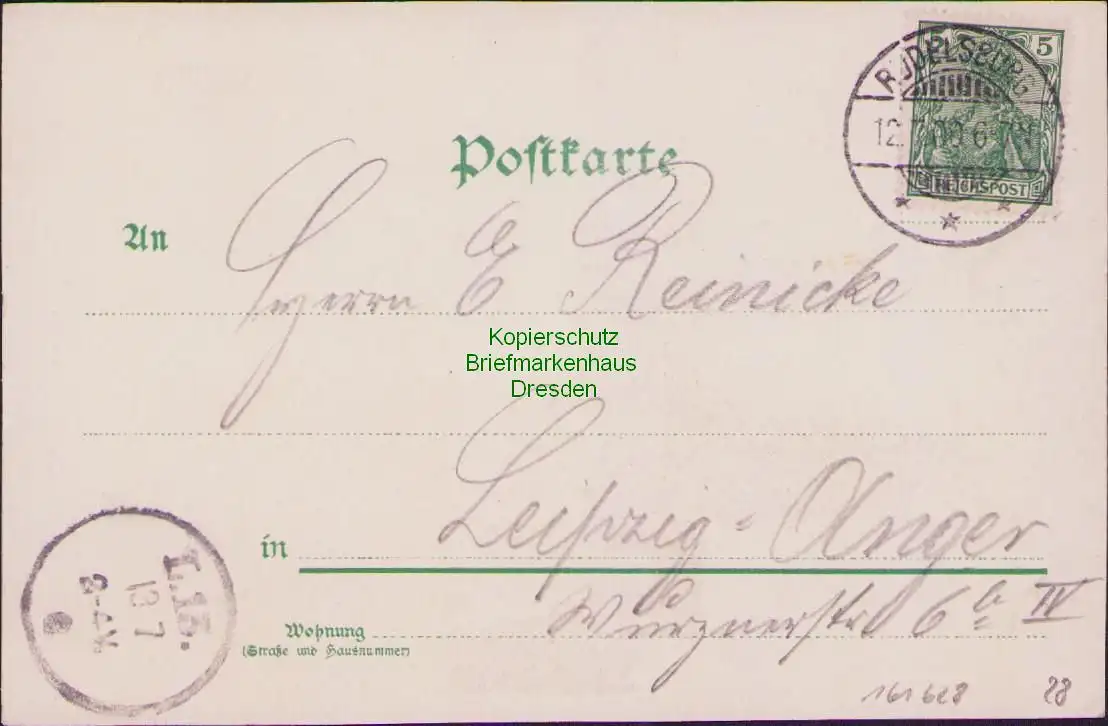 5 5
RUDELSBURG
12.7.00 6-7N
REICHSPOST
Postkarte
An
Herrn E Reinicke
Kopierschutz
Briefmarkenhaus
Dresden
in Leipzig-Anger
Wohnung Wurznerstr 6a IV
(Straße und Hausnummer)
L.13.
13 7
2-4N
161628
28